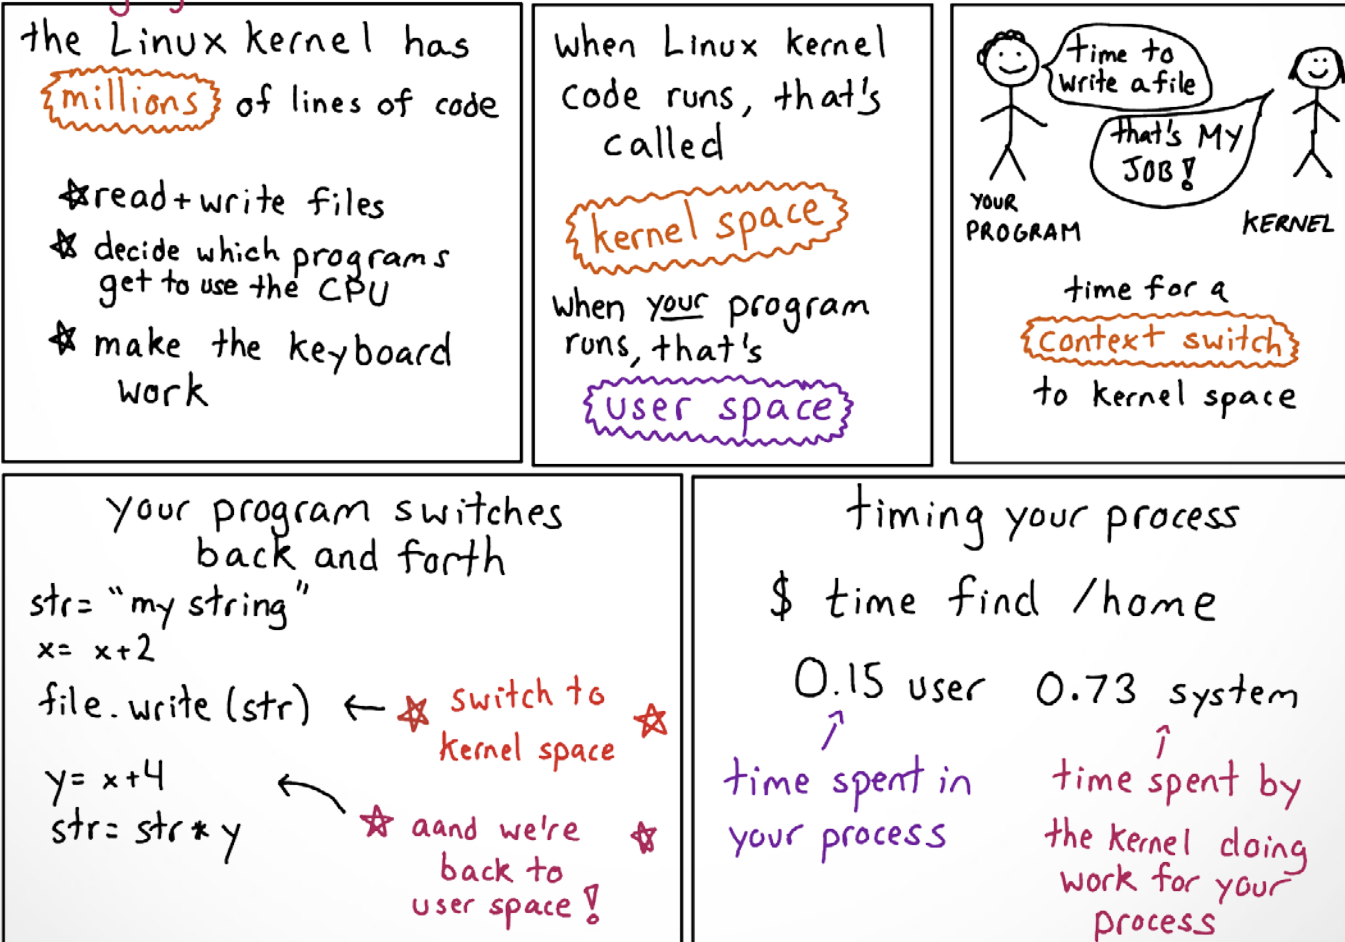 the Linux kernel has
millions of lines of code
read + write files
decide which programs
get to use the CPU
make the keyboard
work
when Linux kernel
code runs, that's
called
kernel space
when your program
runs, that's
user space
time to
write a file
that's MY
JOB!
YOUR
PROGRAM
KERNEL
time for a
context switch
to kernel space
your program switches
back and forth
str= "my string"
x= x+2
file.write(str)
switch to
kernel space
y= x+4
str= str * y
aand we're
back to
user space!
timing your process
$ time find /home
0.15 user 0.73 system
time spent in
your process
time spent by
the kernel doing
work for your
process